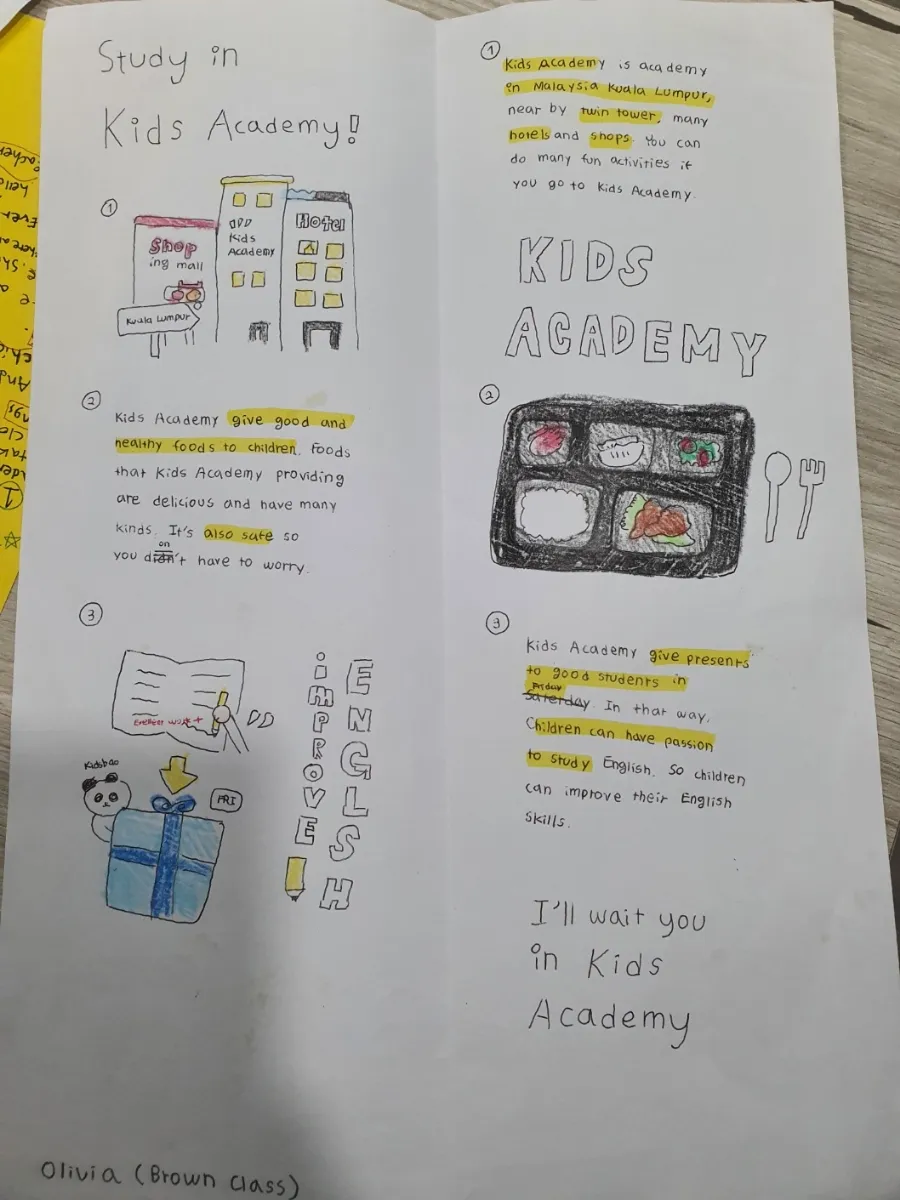 Study in
Kids Academy!
①
Shop
ing mall
Kids
Academy
Hotel
Kuala Lumpur
②
Kids Academy give good and
healthy foods to children. Foods
that Kids Academy providing
are delicious and have many
kinds. It's also safe so
you don't have to worry.
③
Kidsbao
FRI
iMPROVE
ENGLSH
①
Kids Academy is academy
in Malaysia Kuala Lumpur,
near by twin tower, many
hotels and shops. You can
do many fun activities if
you go to Kids Academy.
KIDS
ACADEMY
②
③
Kids Academy give presents
to good students in
Friday
Saterday. In that way,
Children can have passion
to study English. So children
can improve their English
skills.
I'll wait you
in Kids
Academy
Olivia (Brown class)